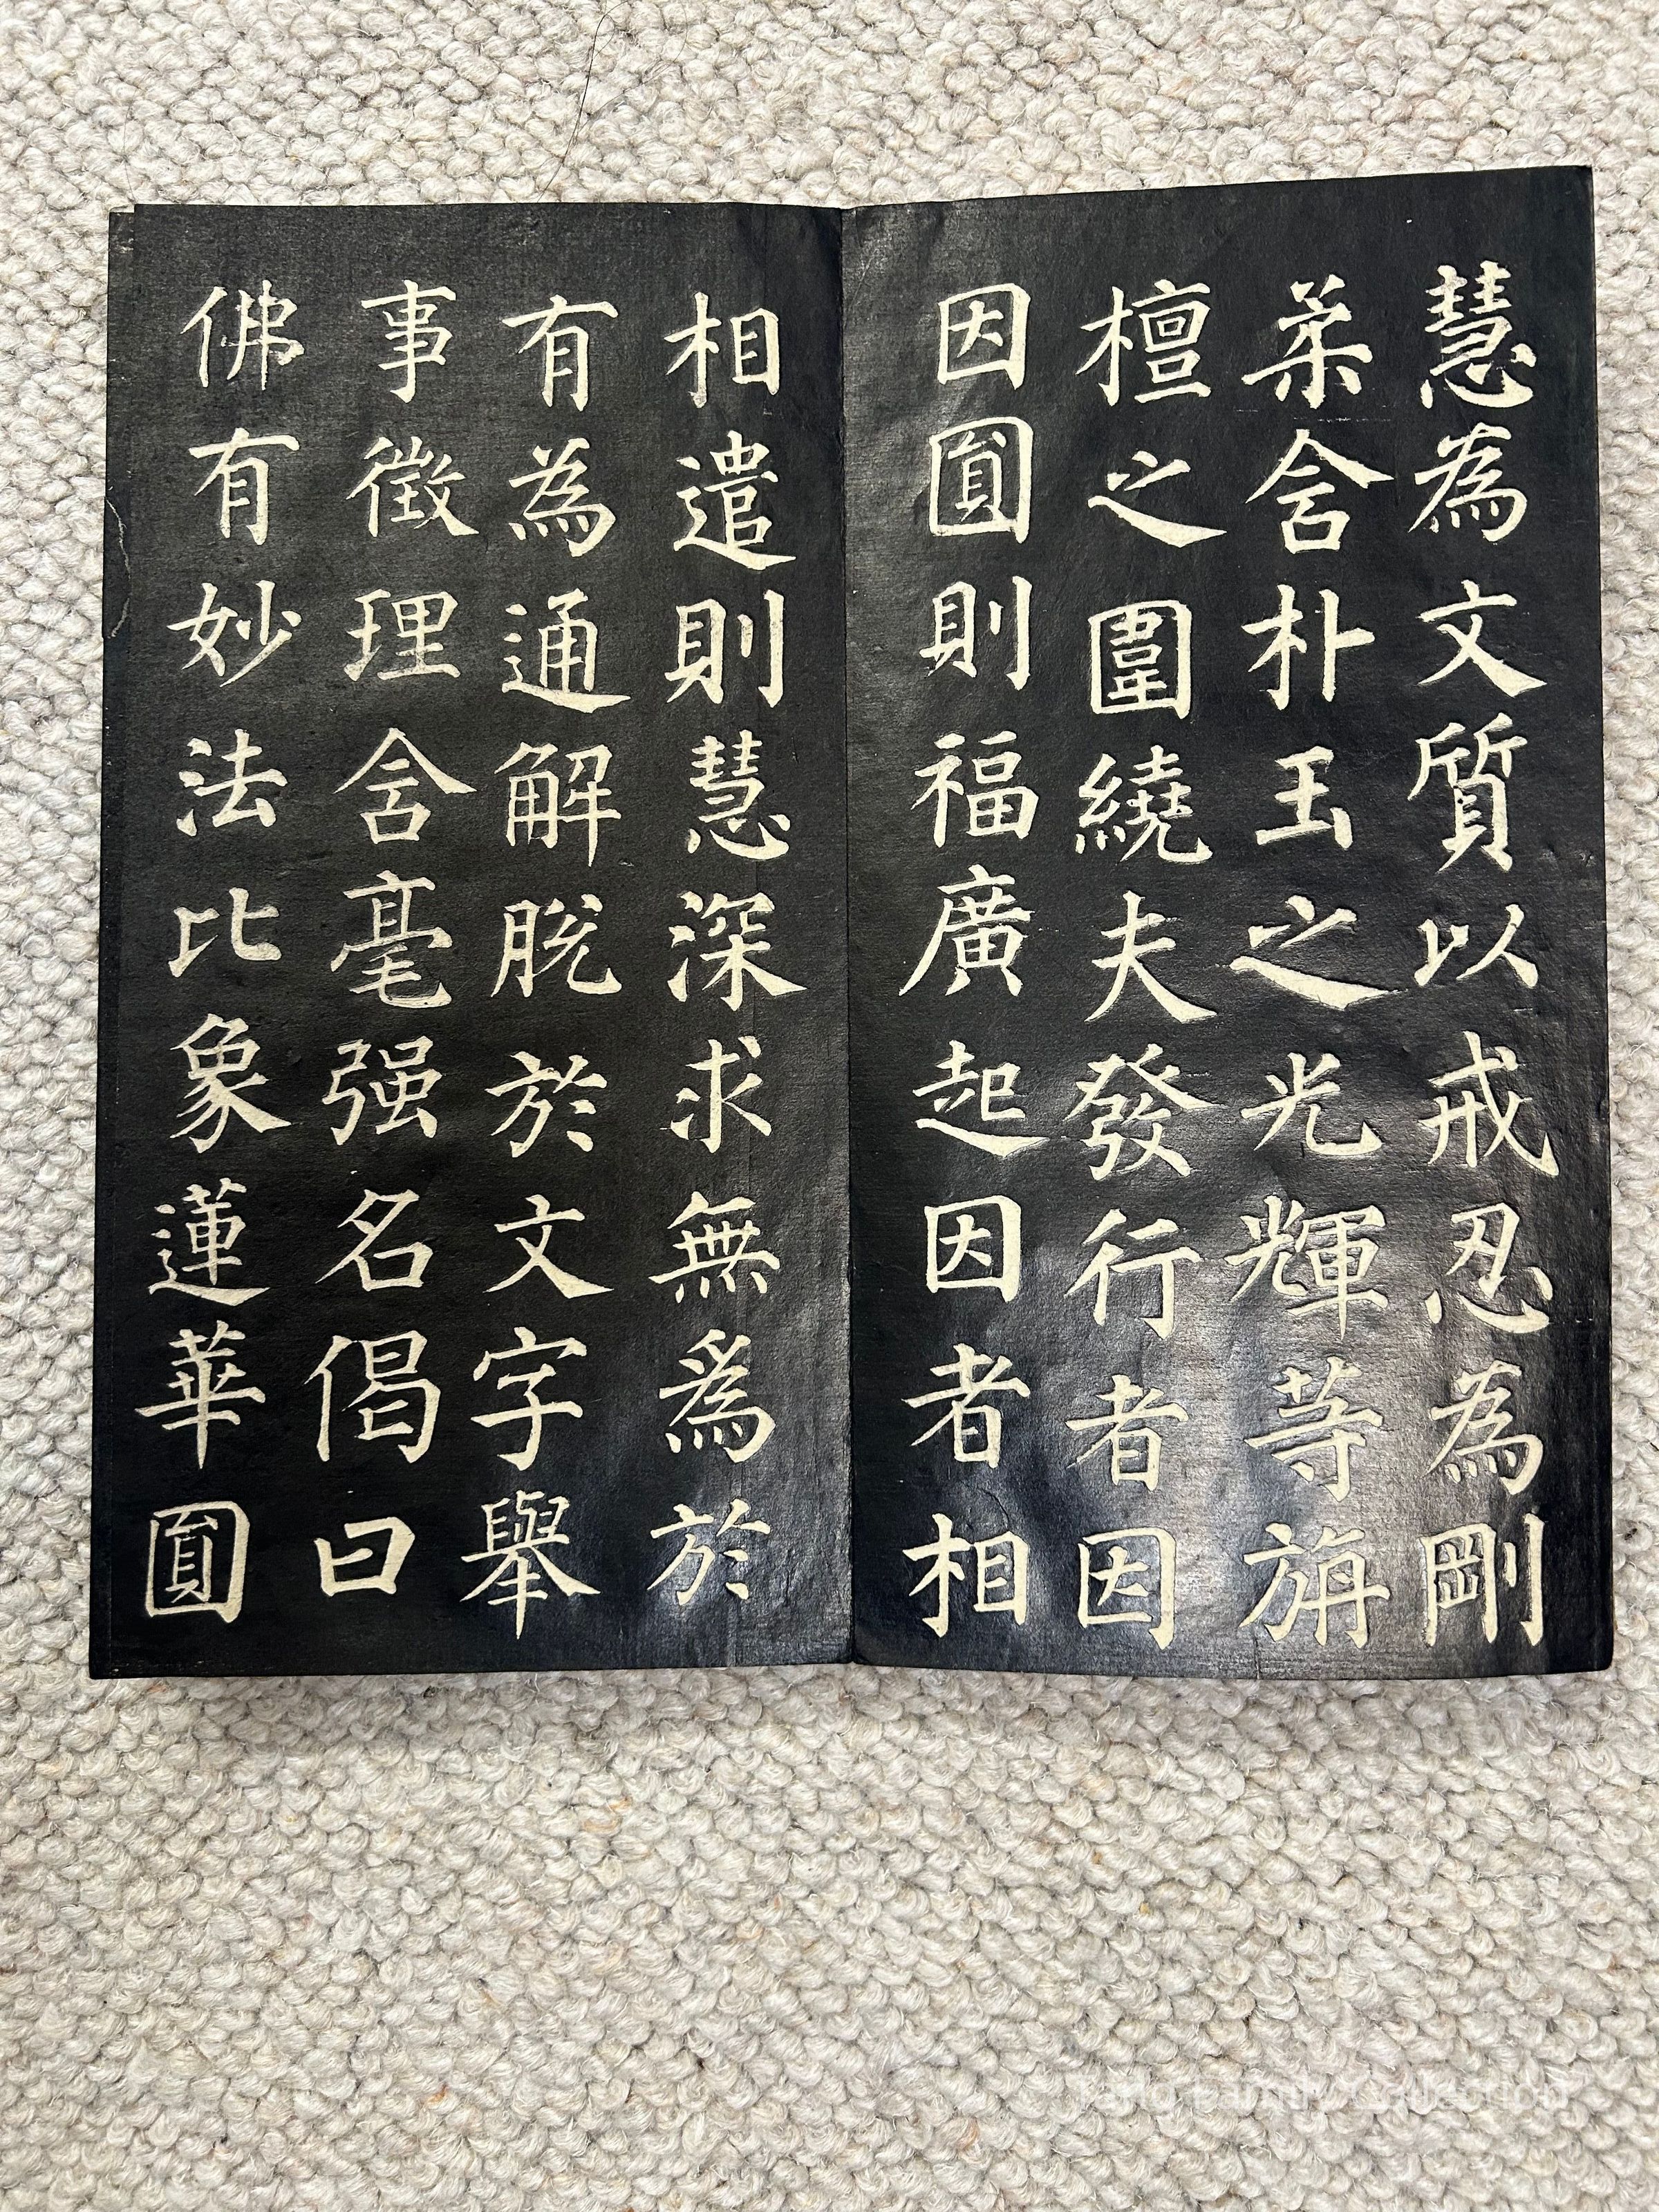 慧為文質以戒忍為剛
柔含朴玉之光輝等旃
檀之圍繞夫發行者因
因圎則福廣起因者相
相遣則慧深求無爲於
有為通解脫於文字舉
事徵理含毫强名偈曰
佛有妙法比象蓮華圎